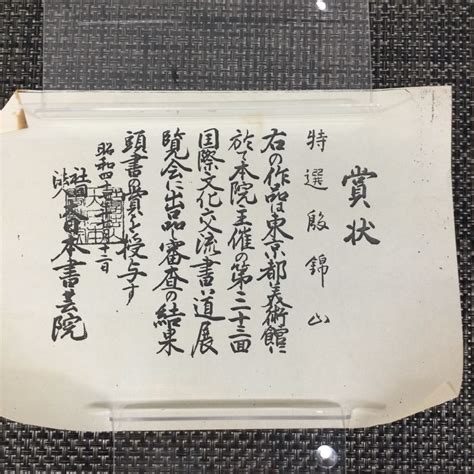 賞状
特選 殷錦山
右の作品は東京都美術館に
於て本院主催の第二十三回
国際文化交流書道展
覧会に出品審査の結果
頭書の賞を授与す
昭和四十
社団
法人
日本書芸院